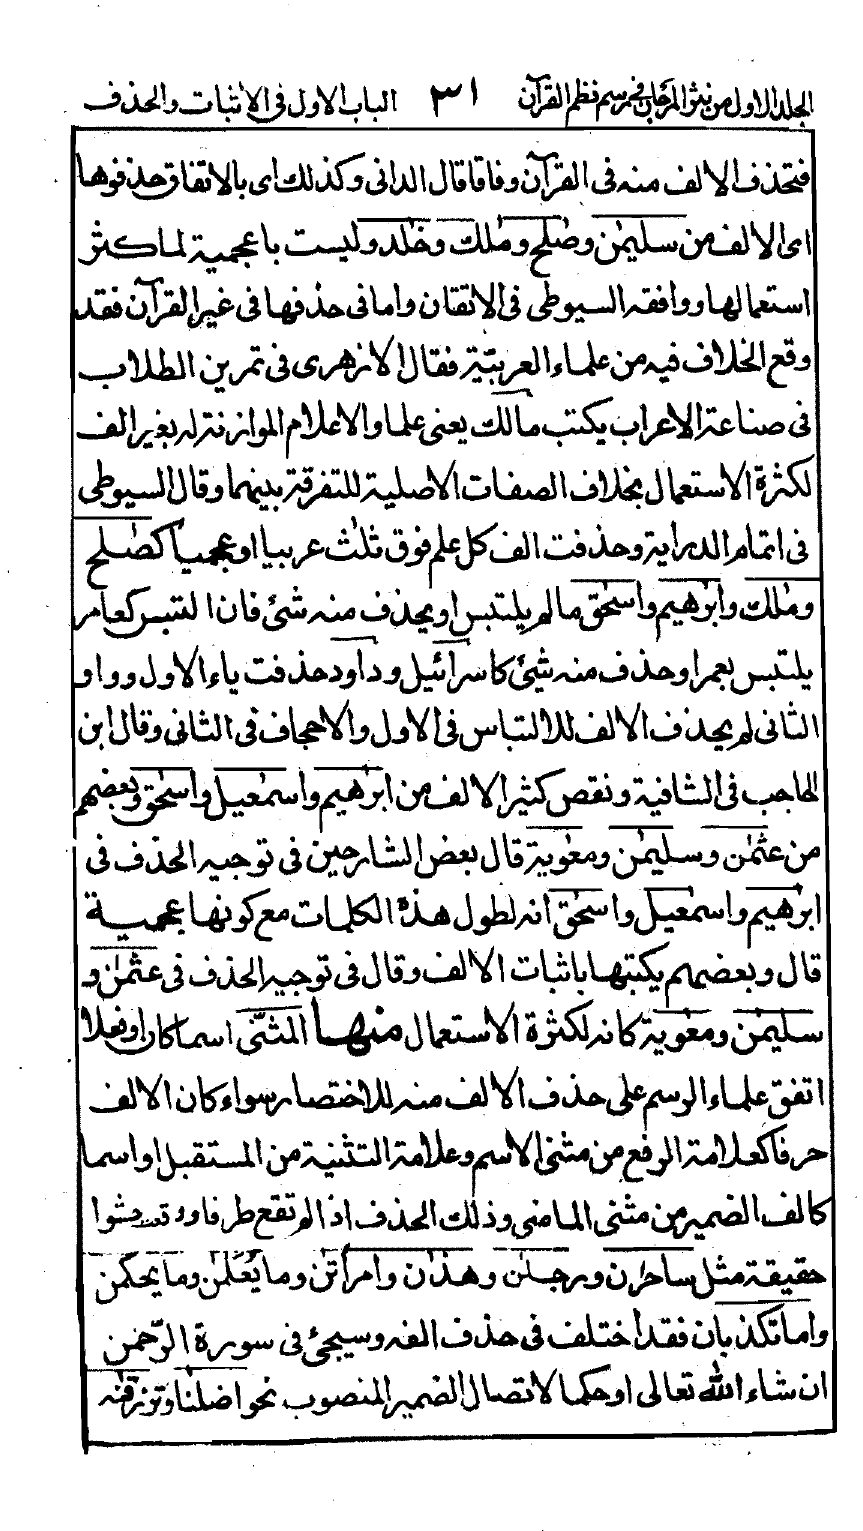 الجلد الاول من نثر المرجان في رسم نظم القرآن ٣١ الباب الاول في الاثبات والحذف
فتحذف الالف منه في القرآن وفاقا قال الداني وكذلك اى بالاتفاق حذفوها
اى الالف من سليمٰن وصٰلح ومٰلك وخٰلد وليست باعجمية لما كثر
استعمالها ووافقه السيوطى فى الاتقان واما فى حذفها فى غير القرآن فقد
وقع الخلاف فيه من علماء العربيّة فقال الازهرى فى تمرين الطلاب
فى صناعة الاعراب يكتب مالك يعنى علما والاعلام الموازنة له بغير الف
لكثرة الاستعمال بخلاف الصفات الاصلية للتفرقة بينهما وقال السيوطى
فى اتمام الدراية وحذفت الف كل علم فوق ثلٰث عربيا او عجميا كصٰلح
ومٰلك وابرٰهيم واسحٰق مالم يلتبس او يحذف منه شئ فان التبس كعامر
يلتبس بعمر او حذف منه شئ كاسرائيل وداود حذفت ياء الاول وواو
الثانى لم يحذف الالف للالتباس فى الاول والاجحاف فى الثانى وقال ابن
الحاجب فى الشافية ونقص كثير الالف من ابرٰهيم واسمٰعيل واسحٰق وبعضهم
من عثمٰن وسليمٰن ومعٰوية قال بعض الشارحين فى توجيه الحذف فى
ابرٰهيم واسمٰعيل واسحٰق انه لطول هذه الكلمات مع كونها عجمية
قال وبعضهم يكتبها باثبات الالف وقال فى توجيه الحذف فى عثمٰن و
سليمٰن ومعٰوية كانه لكثرة الاستعمال منها المثنّى اسما كان او فعلا
اتفق علماء الرسم على حذف الالف منه للاختصار سواء كان الالف
حرفا كعلامة الرفع من مثنى الاسم وعلامة التثنية من المستقبل او اسما
كالف الضمير من مثنى الماضى وذلك الحذف اذا لم تقع طرفا
حقيقة مثل ساحرٰن ورجلٰن وهذٰن وامراتٰن وما يُعلّمٰن وما يحكمٰن
واما تكذبان فقد اختلف فى حذف الفه وسيجئ فى سورة الرّحمٰن
ان شاء الله تعالى او حكما لاتصال الضمير المنصوب نحو اضلّٰنا